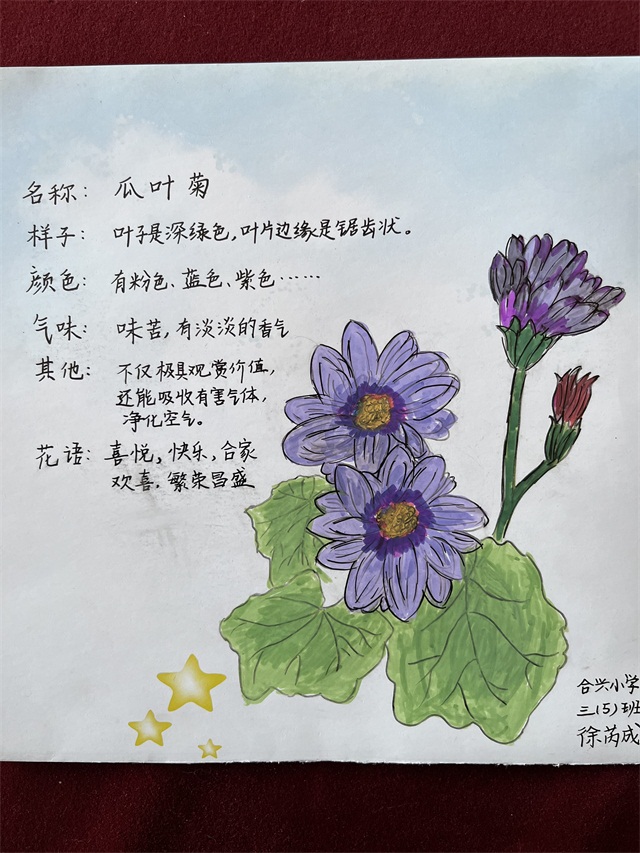 名称： 瓜叶菊
样子： 叶子是深绿色，叶片边缘是锯齿状。
颜色： 有粉色、蓝色、紫色……
气味： 味苦，有淡淡的香气
其他： 不仅极具观赏价值，
还能吸收有害气体，
净化空气。
花语： 喜悦，快乐，合家
欢喜，繁荣昌盛
合兴小学
三（5）班
徐芮成